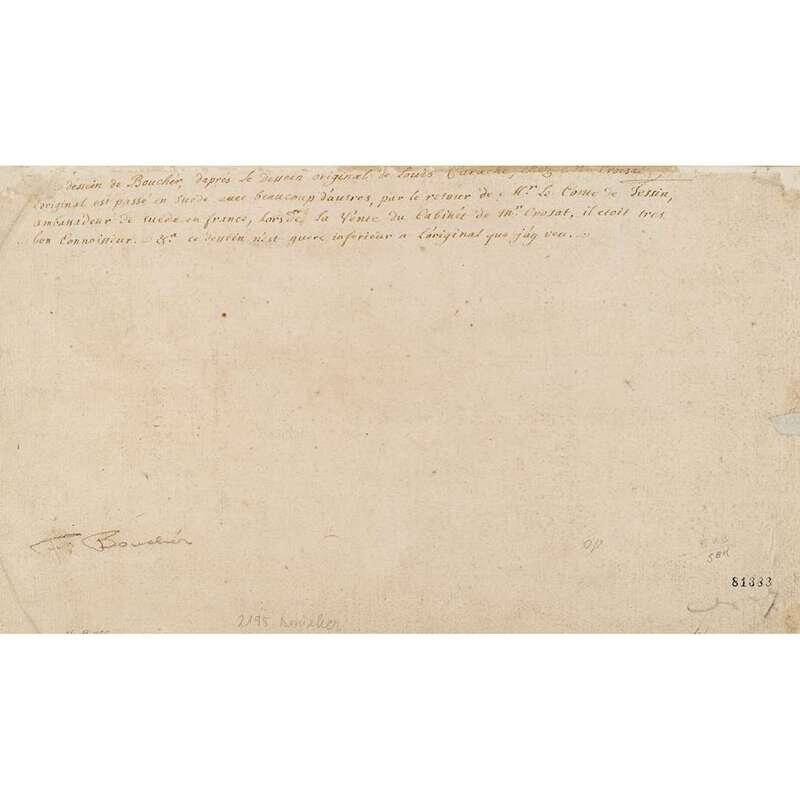 dessein de Boucher, daprès le dessein original de Louis Carache,
Loriginal est passé en suede avec beaucoup d'autres, par le retour de Mr. Le Comte de Tessin,
ambassadeur de suede en france, Lors de La Vente du Cabinet de mr. Crosat, il etoit tres
bon Connoisseur. ce dessein n'est guere inferieur a Loriginal que j'ay veu.
F. Boucher
OP
SBM
81333
2195 Boucher